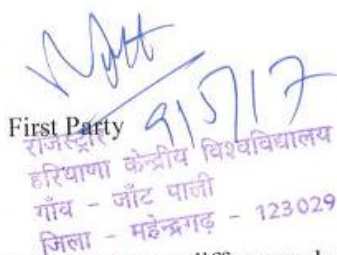 First Party
9/5/17
राजिस्ट्रार
हरियाणा केन्द्रीय विश्वविद्यालय
गाँव - जाँट पाली
जिला - महेन्द्रगढ़ - 123029